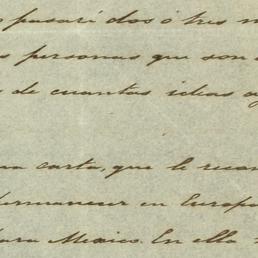 pasari dos ó tres
personas que son
de cuantas ideas
una carta, que le
permanecer en Europa
para Mexico. En ella